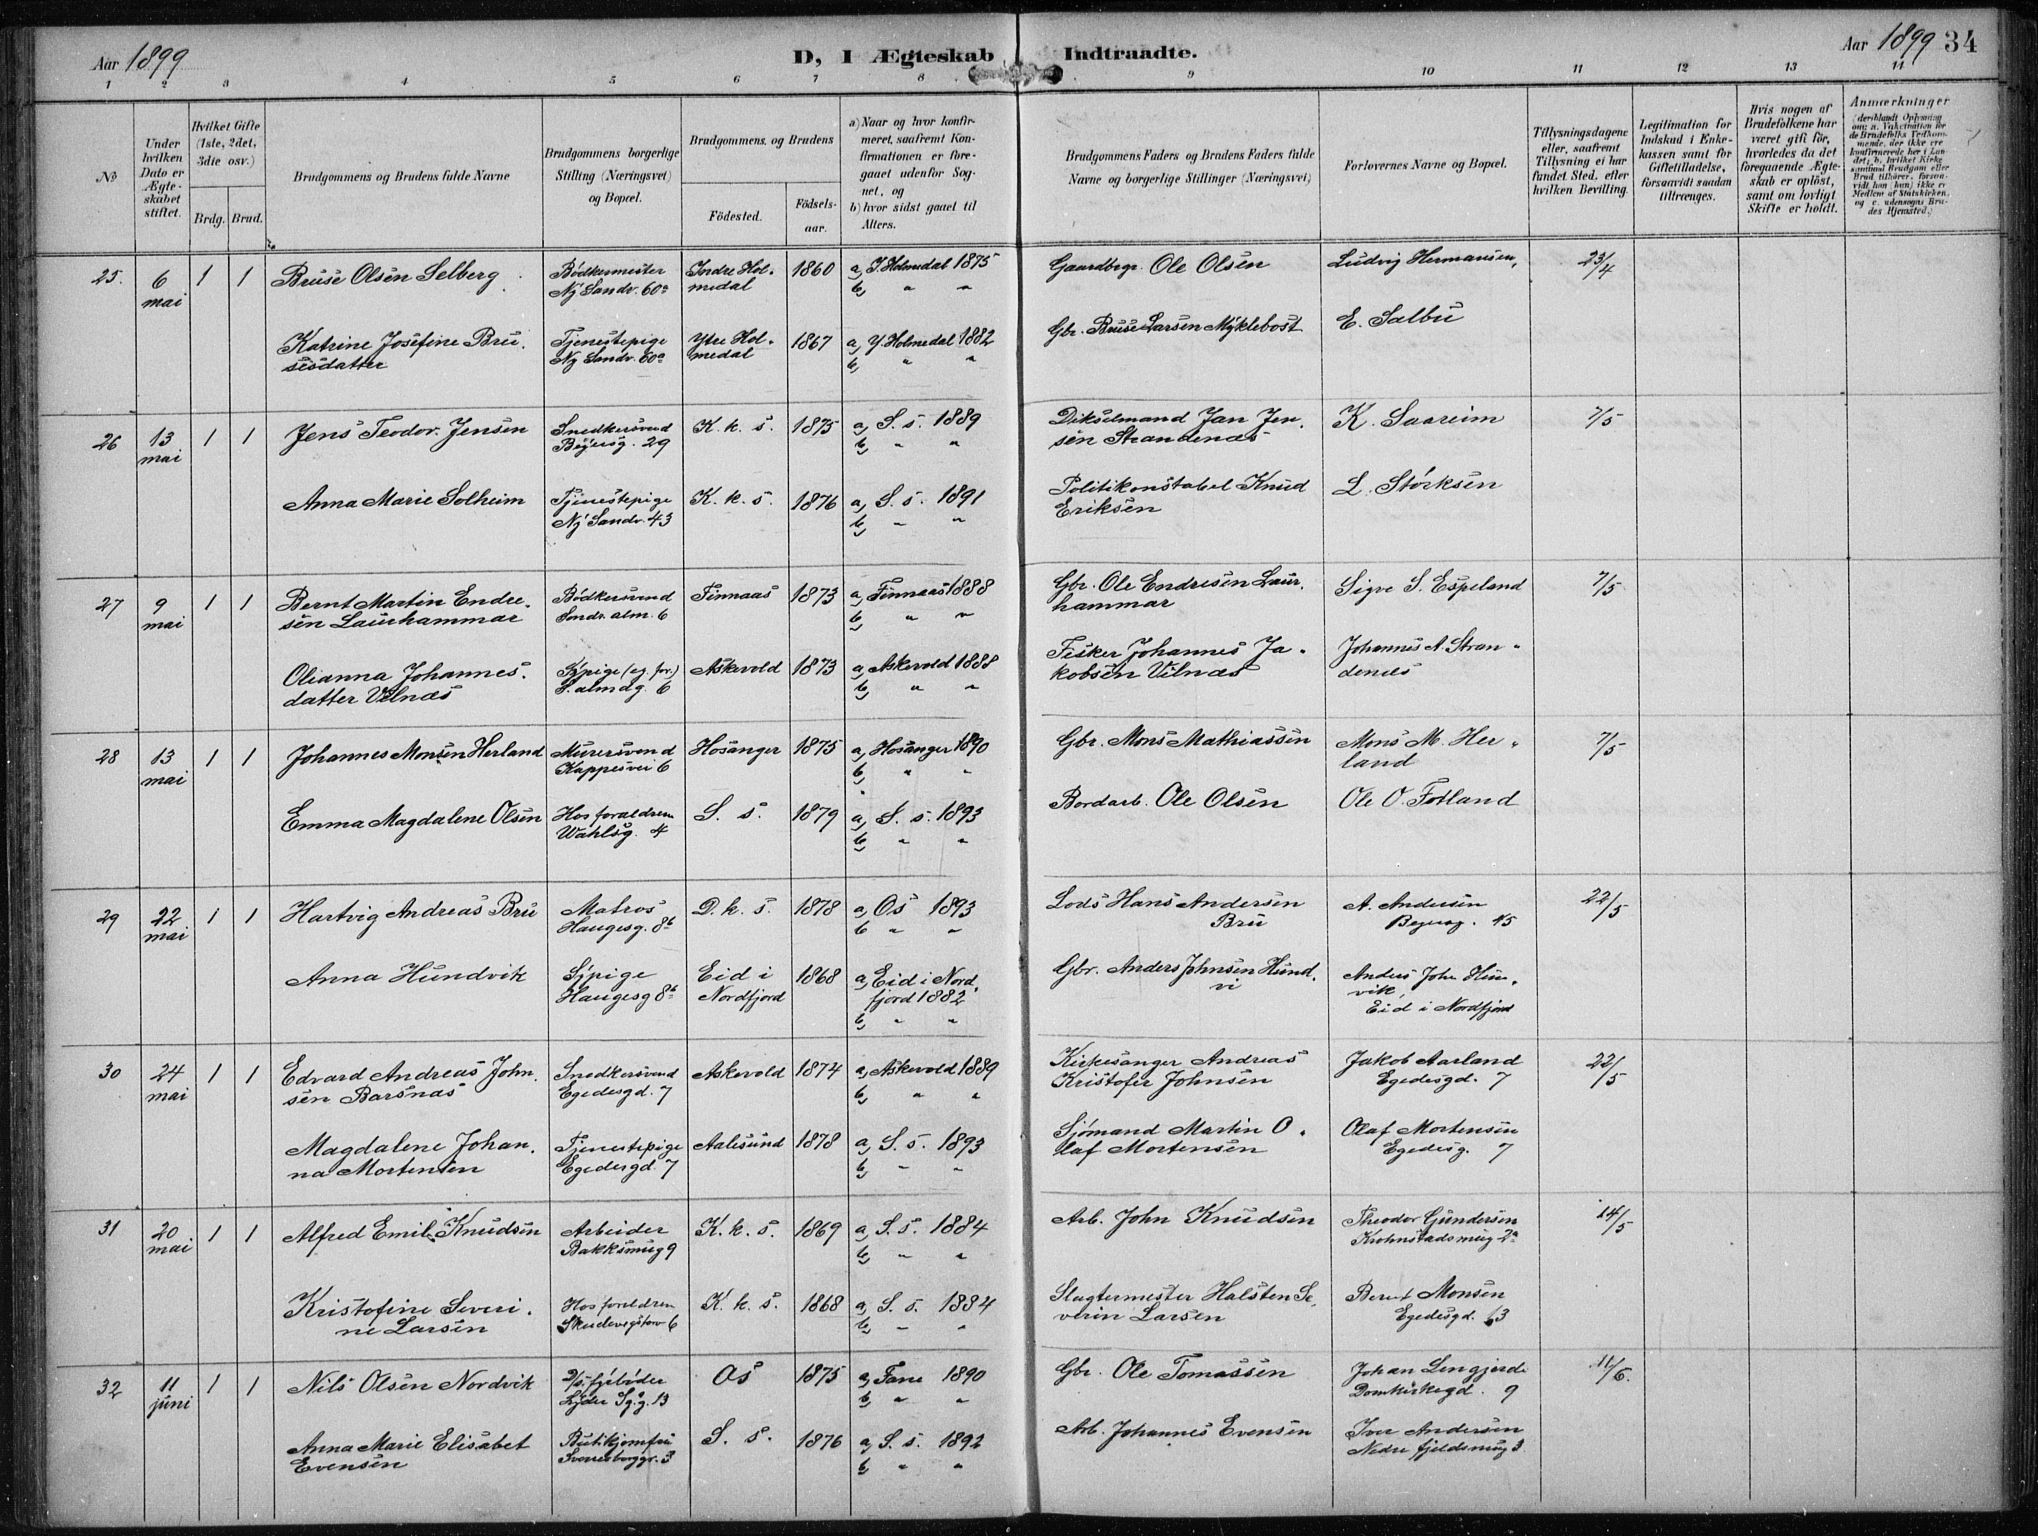 Aar 1899
D, I Ægteskab Indtraadte.
Aar 1899 34
1 2 3 4 5 6 7 8 9 10 11 12 13 14
No
Under hvilken Dato er Ægteskabet stiftet.
Hvilket Gifte (1ste, 2det, 3die osv.)
Brdg. Brud.
Brudgommens og Brudens fulde Navne
Brudgommens borgerlige Stilling (Næringsvei) og Bopæl.
Brudgommens og Brudens
Fødested. Fødselsaar.
a) Naar og hvor konfirmeret, saafremt Konfirmationen er foregaaet udenfor Sognet, og
b) hvor sidst gaaet til Alters.
Brudgommens Faders og Brudens Faders fulde Navne og borgerlige Stillinger (Næringsvei)
Forlovernes Navne og Bopæl.
Tillysningsdagene eller, saafremt Tillysning ei har fundet Sted, efter hvilken Bevilling.
Legitimation for Indskud i Enkekassen samt for Giftetilladelse, forsaavidt saadan tiltrænges.
Hvis nogen af Brudefolkene har været gift før, hvorledes da det foregaaende Ægteskab er opløst, samt om lovligt Skifte er holdt.
Anmærkninger
25. 6 mai 1 1 Bruse Olsen Selberg Bødkermester Ny Sandv. 60a Indre Holmedal 1860 a, I. Holmedal 1875 b, " " Gaardbrgr. Ole Olsen Ludvig Hermansen, 23/4
Katrine Josefine Brusesdatter Tjenestepige Ny Sandv. 60a Ytre Holmedal 1867 a, Y. Holmedal 1882 b, " " Gbr. Bruse Larsen Myklebost E. Salbu
26 13 mai 1 1 Jens Teodor Jensen Snedkersvend Beyersg. 29 K. k. s. 1875 a, S. s. 1889 b, " " Dikselmand Jan Jensen Strandenæs K. Saareim 7/5
Anna Marie Solheim Tjenestepige Ny Sandv. 43 K. k. s. 1876 a, S. s. 1891 b, " " Politikonstabel Knud Eriksen L. Størksen
27 9 mai 1 1 Bernt Martin Endresen Laurhammar Bødkersvend Sondr. alm. 6 Finnaas 1873 a, Finnaas 1888 b, " " Gbr. Ole Endresen Laurhammar Sigve S. Espeland 7/5
Olianna Johannesdatter Vilnæs S. almdg. 6 Askevold 1873 a, Askevold 1888 b, " " Fisker Johannes Jakobsen Vilnæs Johannes A. Strandenæs
28 13 mai 1 1 Johannes Monsen Herland Murersvend Kappesvei 6 Hosanger 1875 a, Hosanger 1890 b, " " Gbr. Mons Mathiassen Mons M. Herland 7/5
Emma Magdalene Olsen Hos forældren Wahlsg. 4 S. s. 1879 a, S. s. 1893 b, " " Bordarb. Ole Olsen Ole O. Fotland
29 22 mai 1 1 Hartvig Andreas Bru Matros Haugesg. 8b D. k. s. 1878 a, Os 1893 b " " Lods Hans Andersen Bru A. Andersen Beyersg. 45 22/5
Anna Hundvik Sypige Haugesg 8b Eid i Nordfjord 1868 a, Eid i Nordfjord 1882 b, " " Gbr. Anders Johnsen Hundvi Anders John Hunvik, Eid i Nordfjord
30 24 mai 1 1 Edvard Andreas Johnsen Barsnæs Snedkersvend Egedesgd. 7 Askevold 1874 a, Askevold 1889 b, " " Kirkesanger Andreas Kristofer Johnsen Jakob Aarland Egedesgd. 7 22/5
Magdalene Johanna Mortensen Tjenestepige Egedesgd. 7 Aalesund 1878 a, S. s. 1893 b, " " Sjømand Martin Olaf Mortensen Olaf Mortensen Egedesg. 7
31 20 mai 1 1 Alfred Emil Knudsen Arbeider Bakksmug 9 K. k. s. 1869 a, S. s. 1884 b, " " Arb. John Knudsen Theodor Gundersen Krohnstadsmug 2a 14/5
Kristofine Severine Larsen Hos forældren Skudevigstorv 6 K. k. s. 1868 a, S. s. 1884 b, " " Slagtermester Halsten Severin Larsen Bernt Monsen Egedesgd. 13
32 11 juni 1 1 Nils Olsen Nordvik D/s fyrbøder Os 1875 a, Fane 1890 b, " " Gbr. Ole Tomassen Johan Lengjerde Domkirkegd. 9 11/6.
Anna Marie Elisabet Evensen Butikjomfru S. s. 1876 a, S. s. 1892 b, " " Arb. Johannes Evensen Iver Andersen Nedre fjeldsmug 3.